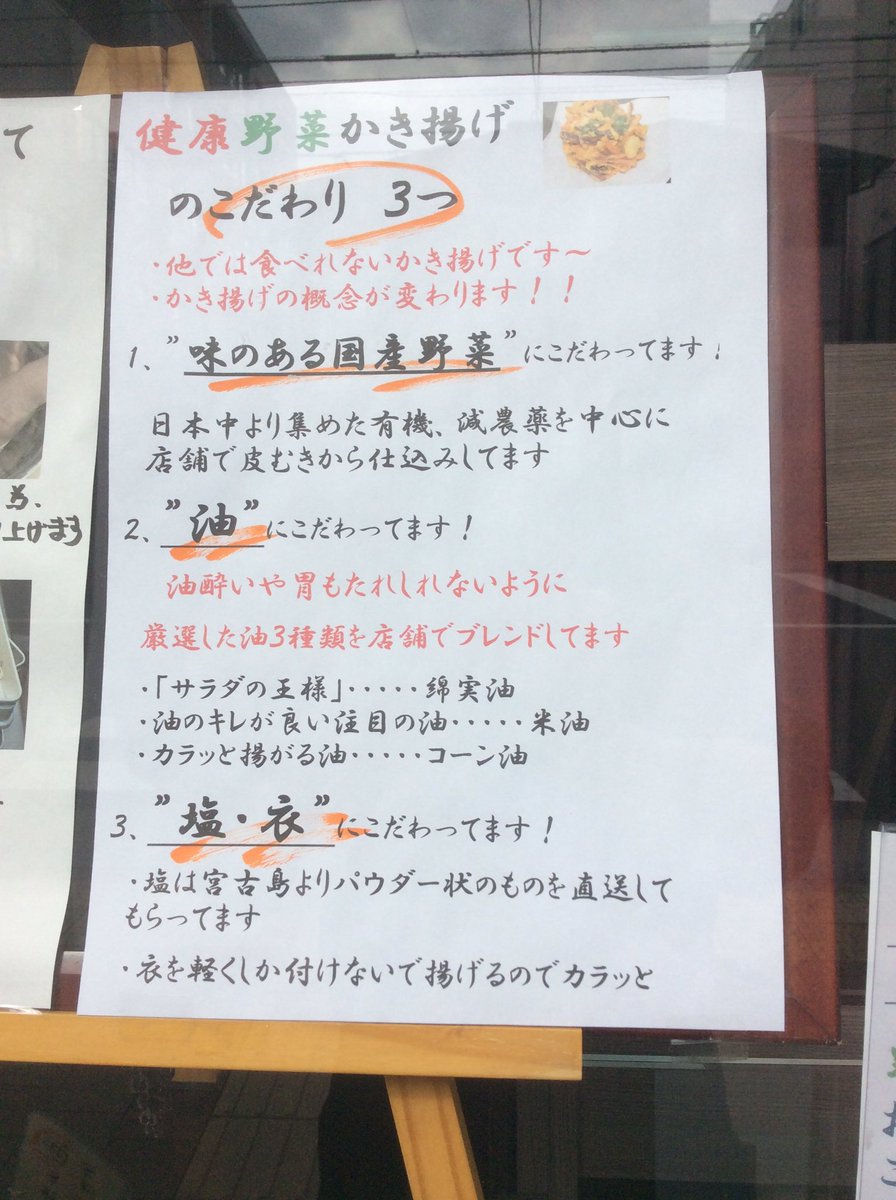 て
当、
上げます
健康野菜かき揚げ
のこだわり 3つ
・他では食べれないかき揚げです～
・かき揚げの概念が変わります！！
1、”味のある国産野菜”にこだわってます！
日本中より集めた有機、減農薬を中心に
店舗で皮むきから仕込みしてます
2、”油”にこだわってます！
油酔いや胃もたれしれないように
厳選した油3種類を店舗でブレンドしてます
・「サラダの王様」・・・・・綿実油
・油のキレが良い注目の油・・・・・米油
・カラッと揚がる油・・・・・コーン油
3、”塩・衣”にこだわってます！
・塩は宮古島よりパウダー状のものを直送して
もらってます
・衣を軽くしか付けないで揚げるのでカラッと